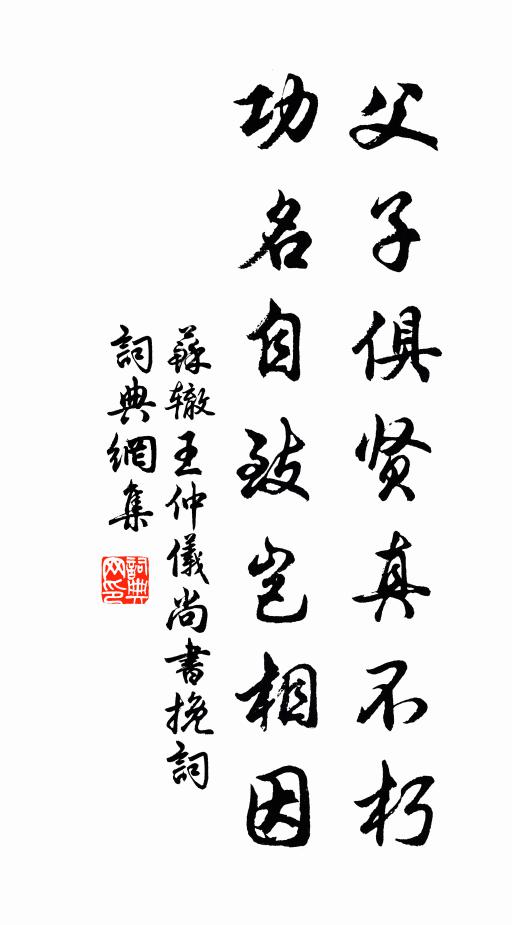 父子俱贤真不朽
功名自致岂相因
蘇辙王仲儀尚書挽詞
詞典網集
詞典网印